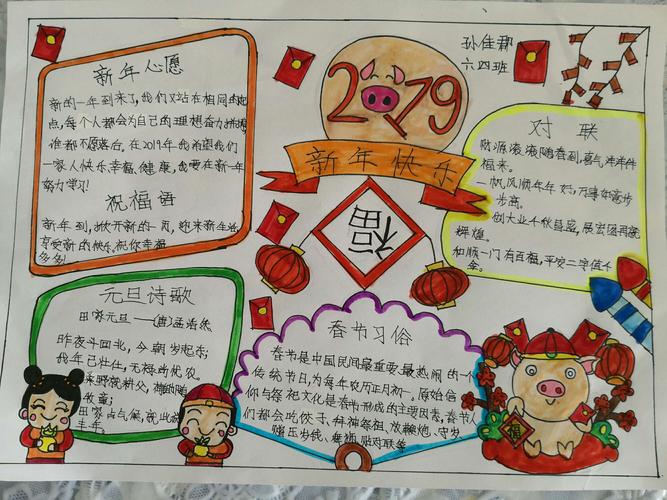 孙佳郡
六四班
2019
新年快乐
福
新年心愿
新的一年到来了,我们又站在相同的起
点,每个人都会为自己的理想奋力拼搏
谁都不愿落后,在2019年我希望我们
一家人快乐、幸福、健康,我要在新一年
努力学习!
祝福语
新年到,掀开新的一页,迎来新生活
享受新的快乐,祝你幸福
多多!
对联
欣源滚滚随春到,喜气洋洋伴
福来。
一帆风顺年年好,万事如意步
步高。
创大业千秋昌盛,展宏图再就
辉煌。
和顺一门有百福,平安二字值千
金。
元旦诗歌
田家元旦——(唐)孟浩然
昨夜斗回北,今朝岁起东;
我年已壮仕,无禄尚忧农。
桑野就耕父,荷锄随
牧童;
田家占气候,说此
丰年。
春节习俗
春节是中国民间最重要、最热闹的一个
传统节日,为每年农历正月初一。原始信
仰与祭祀文化是春节形成的主要因素,春节人
们都会吃饺子、拜神祭祖、放鞭炮、守岁
赐压岁钱、贴对联等
福